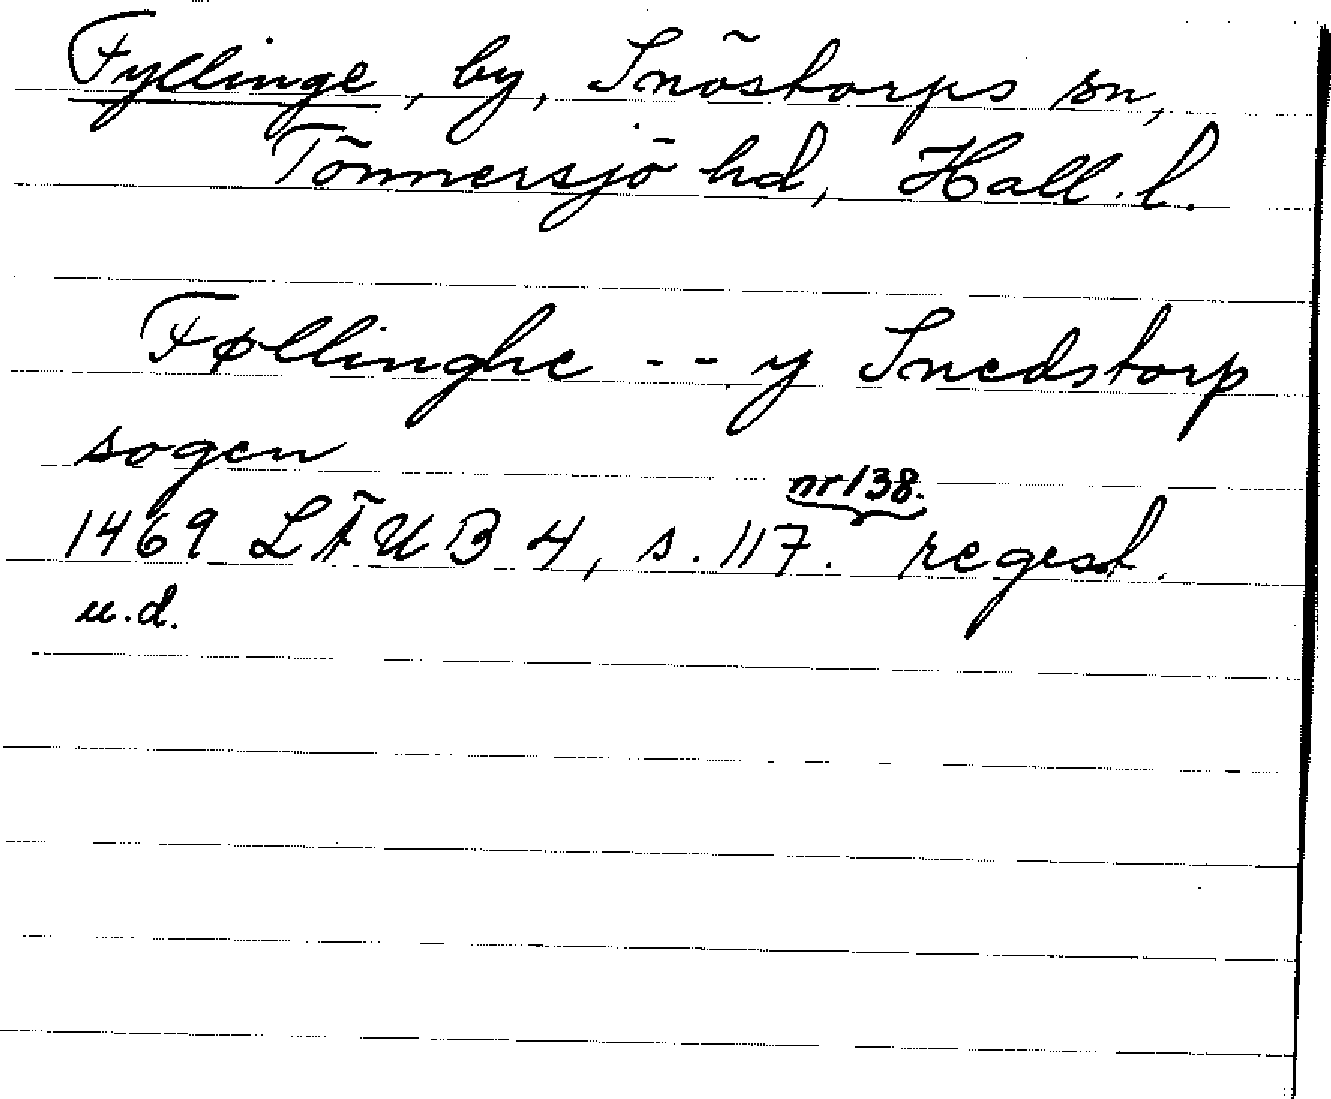 Fyllinge, by, Snöstorps sn,
Tönnersjö hd, Hall. l.
Føllinghe - - y Snedstorp
sogen
nr 138.
1469 LÄUB 4, s. 117. regest.
u.d.